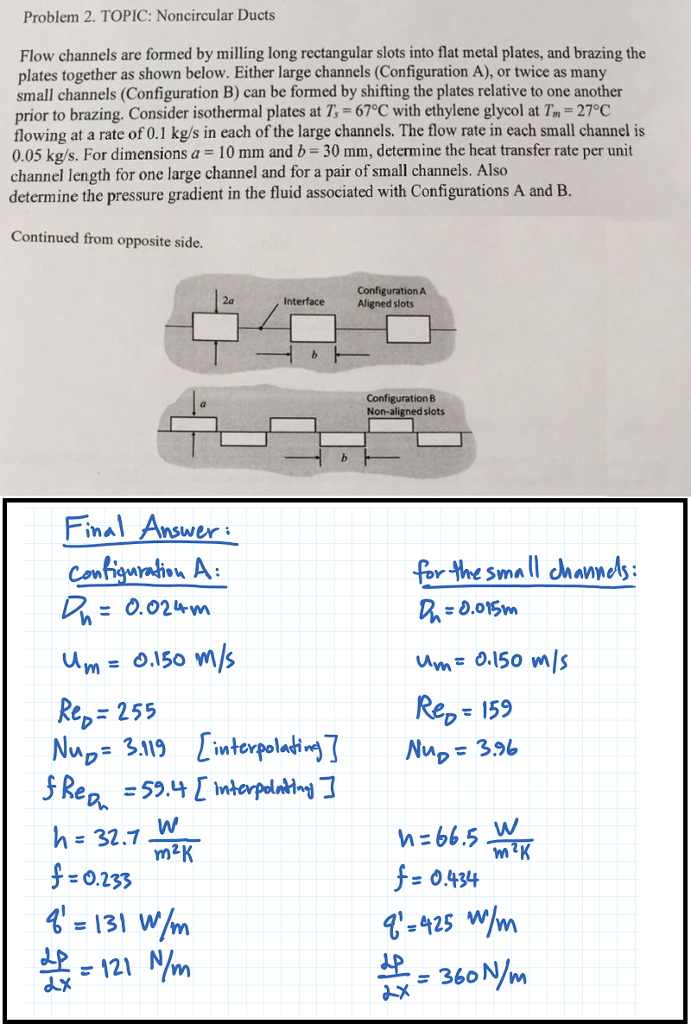 Problem 2. TOPIC: Noncircular Ducts
Flow channels are formed by milling long rectangular slots into flat metal plates, and brazing the
plates together as shown below. Either large channels (Configuration A), or twice as many
small channels (Configuration B) can be formed by shifting the plates relative to one another
prior to brazing. Consider isothermal plates at Ts = 67°C with ethylene glycol at Tm = 27°C
flowing at a rate of 0.1 kg/s in each of the large channels. The flow rate in each small channel is
0.05 kg/s. For dimensions a = 10 mm and b = 30 mm, determine the heat transfer rate per unit
channel length for one large channel and for a pair of small channels. Also
determine the pressure gradient in the fluid associated with Configurations A and B.
Continued from opposite side.
2a
Interface
Configuration A
Aligned slots
b
a
Configuration B
Non-aligned slots
b
Final Answer:
Configuration A:
Dh = 0.024m
um = 0.150 m/s
ReD = 255
NuD = 3.119 [interpolating]
f ReDh = 59.4 [interpolating]
h = 32.7 W/m²K
f = 0.233
q' = 131 W/m
dp/dx = 121 N/m
for the small channels:
Dh = 0.015m
um = 0.150 m/s
ReD = 159
NuD = 3.96
h = 66.5 W/m²K
f = 0.434
q' = 425 W/m
dp/dx = 360 N/m